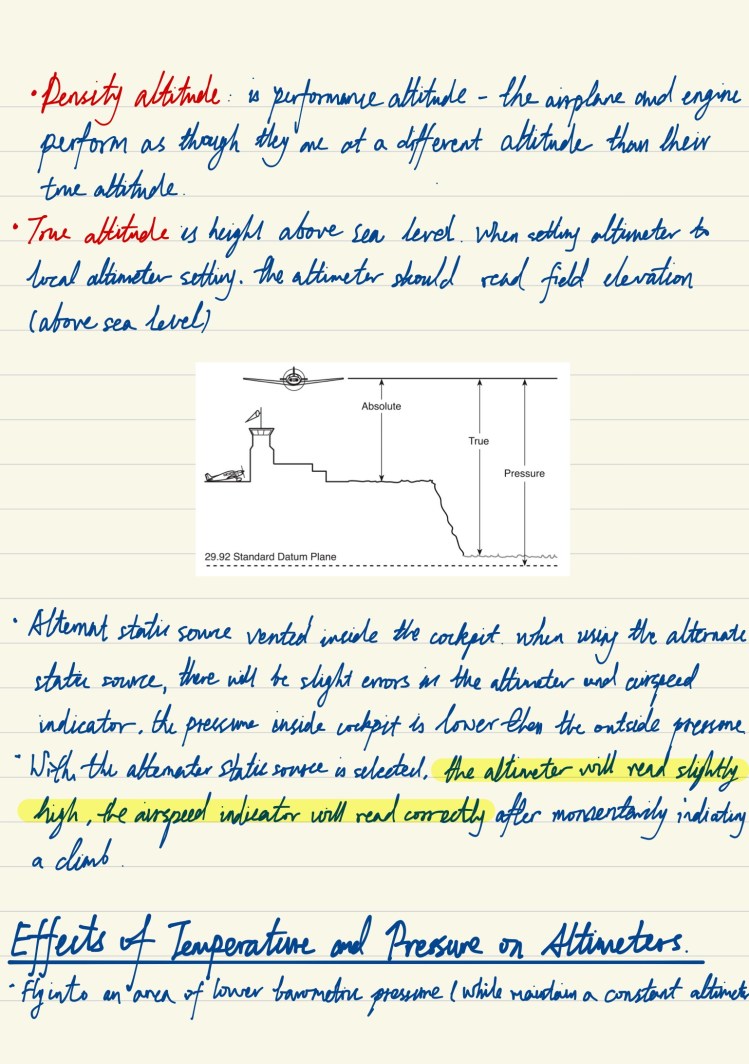 • Density altitude: is performance altitude - the airplane and engine
perform as though they are at a different altitude than their
true altitude.
• True altitude is height above sea level. When setting altimeter to
local altimeter setting. the altimeter should read field elevation
(above sea level)
Absolute
True
Pressure
29.92 Standard Datum Plane
• Alternat static source vented inside the cockpit. when using the alternate
static source, there will be slight errors in the altimeter and airspeed
indicator. the pressure inside cockpit is lower then the outside pressure
• With the alternater static source is selected. the altimeter will read slightly
high, the airspeed indicator will read correctly after momentarily indiating
a climb.
Effects of Temperature and Pressure on Altimeters.
• Fly into an area of lower barometric pressure (while maintain a constant altimete